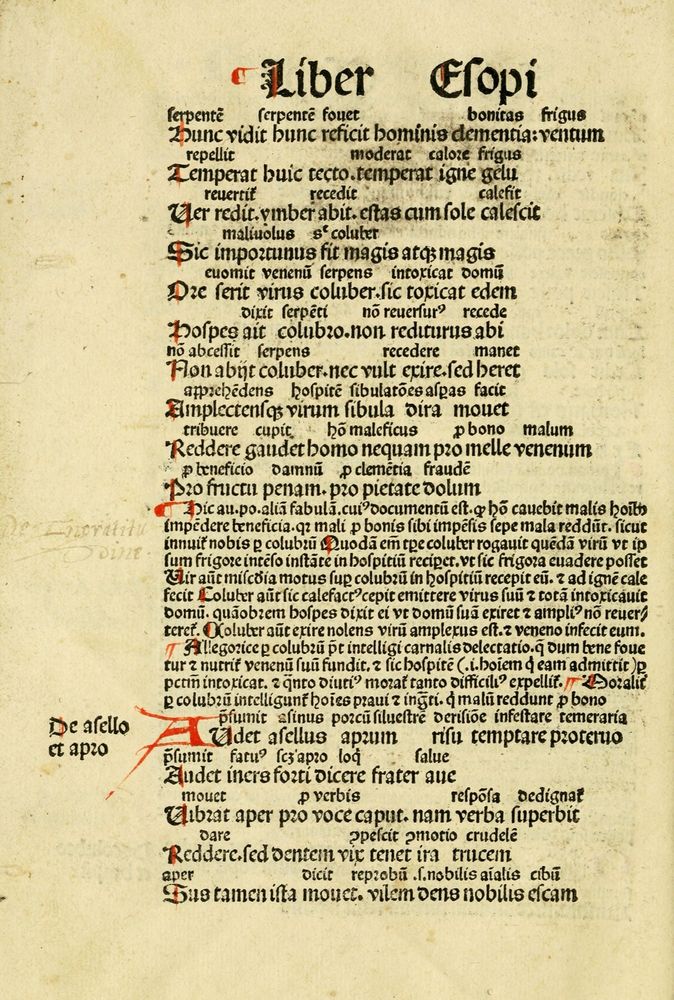 ¶ Liber Esopi
serpentē serpentē fouet bonitas frigus
Hunc vidit hunc reficit hominis clementia: ventum
repellit moderat calore frigus
Temperat huic tecto. temperat igne gelu
reuertiť recedit calefit
Uer redit. vmber abit. estas cum sole calescit
maliuolus sꝭ coluber
Sic importunus fit magis atqꝫ magis
euomit venenū serpens intoxicat domū
Ore serit virus coluber. sic toxicat edem
dixit serpēti nō reuersurꝰ recede
Hospes ait colubro. non rediturus abi
nō abcessit serpens recedere manet
Non abijt coluber. nec vult exire. sed heret
apprehēdens hospitē sibulatōes asp̄as facit
Amplectensqꝫ virum sibula dira mouet
tribuere cupit hō maleficus ꝓ bono malum
Reddere gaudet homo nequam pro melle venenum
ꝓ beneficio damnū ꝓ clemētia fraudē
Pro fructu penam. pro pietate dolum
¶ Hic au. po. aliā fabulā. cuiꝰ documentū est. ꝙ hō cauebit malis hoīb
impēdere beneficia. qꝛ mali ꝓ bonis sibi impēsis sepe mala reddūt. sicut
innuiť nobis ꝑ colubrū Quodā em̄ tꝑe coluber rogauit quēdā virū vt ip
sum frigore intēso instāte in hospitiū reciꝑet. vt sic frigora euadere posset
Uir aūt miscdia motus suꝑ colubrū in hospitiū recepit eū. ⁊ ad ignē cale
fecit Coluber aūt sic calefactꝰ cepit emittere virus suū ⁊ totā intoxicauit
domū. quāobrem hospes dixit ei vt domū suā exiret ⁊ ampliꝰ nō reuer⸗
tereť. Coluber aūt exire nolens virū amplexus est. ⁊ veneno infecit eum.
¶ Allegorice ꝑ colubrū pt̄ intelligi carnalis delectatio. q̄ dum bene foue
tur ⁊ nutriť venenū suū fundit. ⁊ sic hospitē (.i. hoīem q̄ eam admittit) ꝑ
pctm̄ intoxicat. ⁊ q̄nto diutiꝰ morať tanto difficiliꝰ expelliť. ¶ Moraliť
ꝑ colubrū intelligunť hoīes praui ⁊ inḡti. q̇ malū reddunt ꝓ bono
p̄sumit asinus porcū siluestrē derisiōe infestare temeraria
De asello
et apro
AUdet asellus aprum risu temptare proteruo
p̄sumit fatuꝰ scꝫ apro loq̇ salue
Audet iners forti dicere frater aue
mouet ꝓ verbis respōsa dedignať
Uibrat aper pro voce caput. nam verba superbit
dare ꝯpescit ꝯmotio crudelē
Reddere. sed dentem vix tenet ira trucem
aper dicit reprobū .s. nobilis aīalis cibū
Sus tamen ista mouet. vilem dens nobilis escam